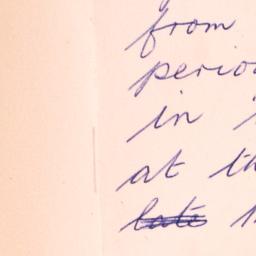 from
perio
in
at th
late